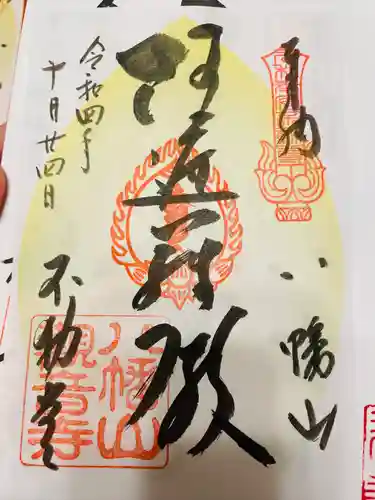 奉拝
八幡山
阿遮羅殿
令和四年
十月廿四日
不動堂
八幡山
観音寺